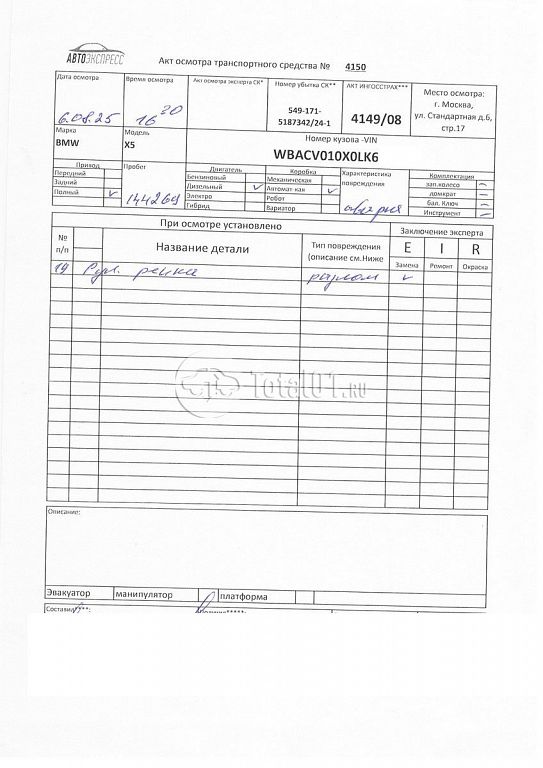 АВТОЭКСПРЕСС
Акт осмотра транспортного средства № 4150
Дата осмотра
6.08.25
Время осмотра
16 20
Акт осмотра эксперта СК*
Номер убытка СК**
549-171-
5187342/24-1
АКТ ИНГОССТРАХ***
4149/08
Место осмотра:
г. Москва,
ул. Стандартная д.6,
стр.17
Марка
BMW
Модель
X5
Номер кузова -VIN
WBACV010X0LK6
Привод
Передний
Задний
Полный
Пробег
144269
Двигатель
Бензиновый
Дизельный
Электро
Гибрид
Коробка
Механическая
Автомат-кая
Робот
Вариатор
Характеристика
повреждения
авария
Комплектация
зап.колесо
домкрат
бал. Ключ
Инструмент
При осмотре установлено
Заключение эксперта
№
п/п
Название детали
Тип повреждения
(описание см.Ниже
E I R
Замена Ремонт Окраска
19 Рул. рейка разлом
Total01.RU
Описание:
Эвакуатор манипулятор платформа